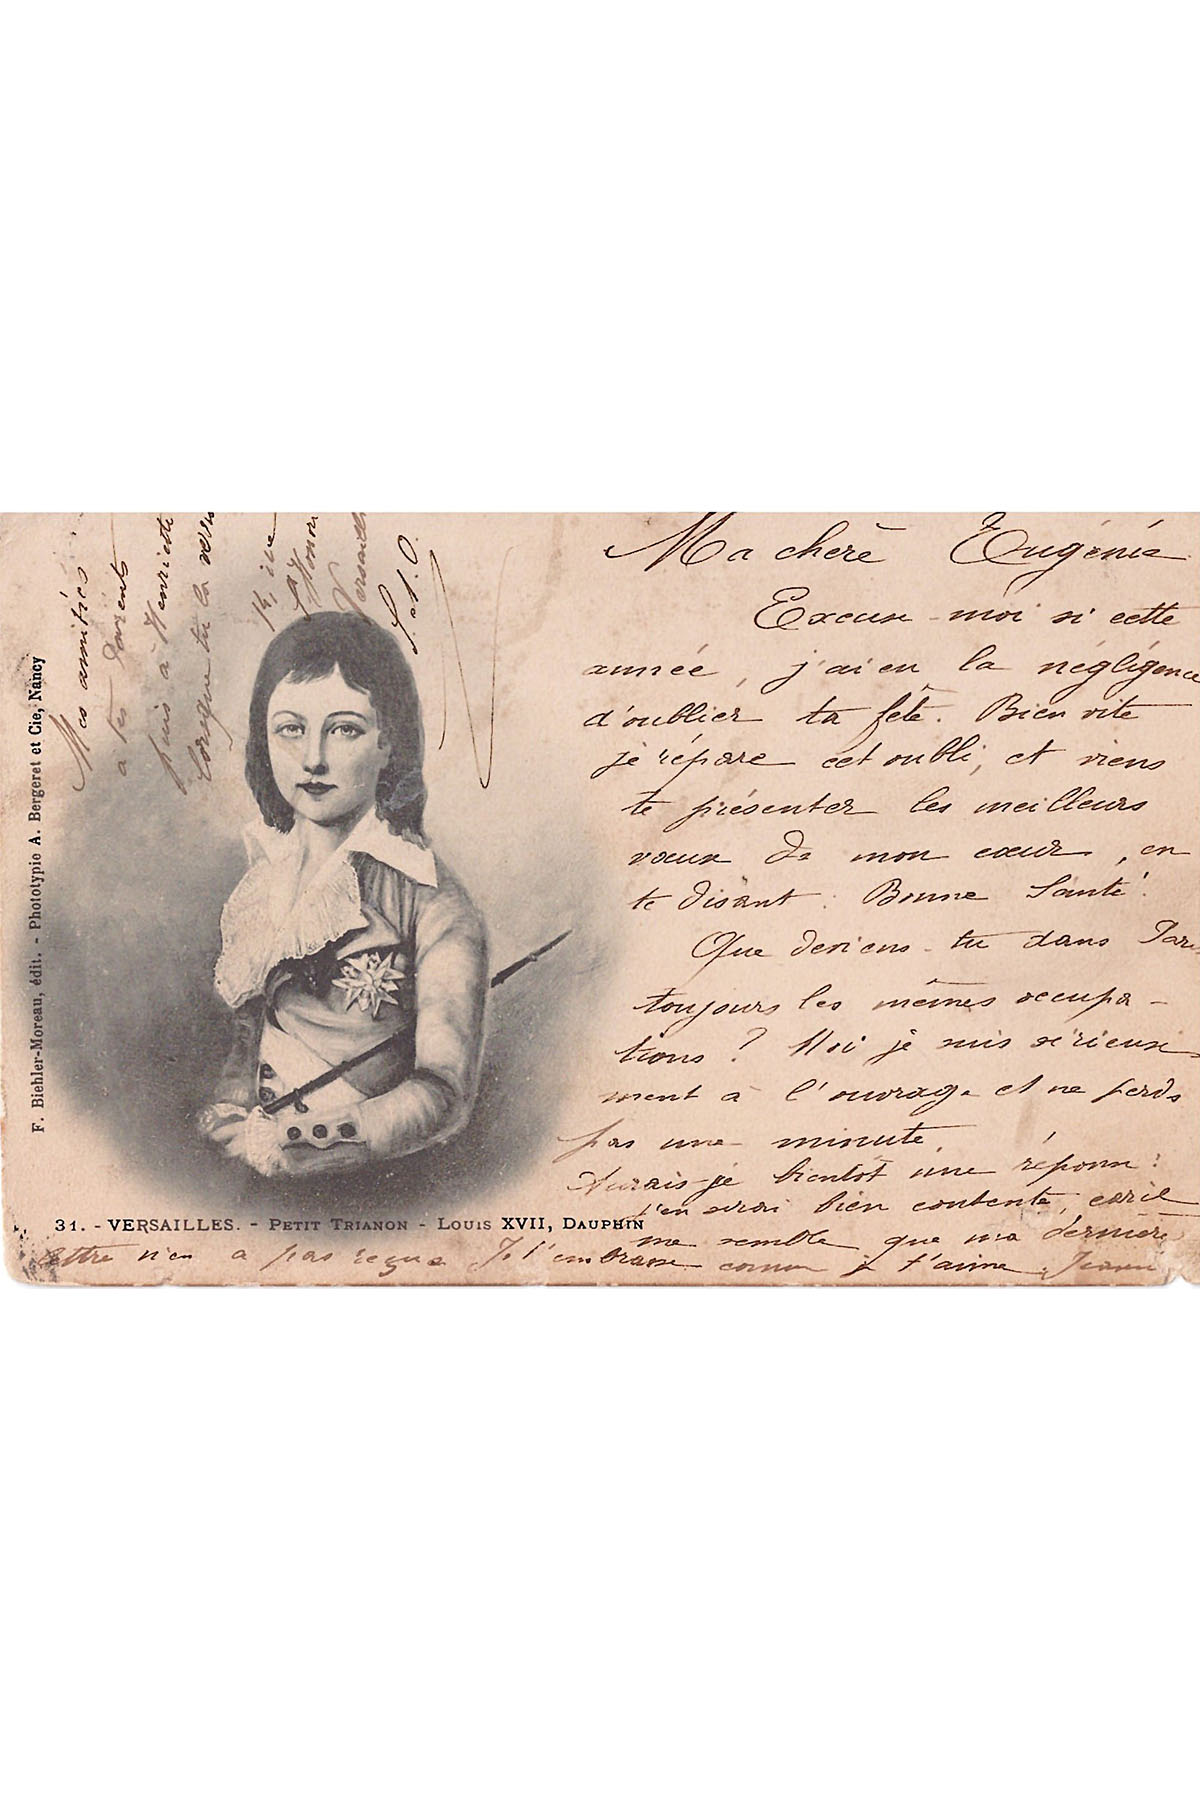 Ma chère Eugénie
Excuse-moi si cette
année, j'ai eu la négligence
d'oublier ta fête. Bien vite
je répare cet oubli, et viens
te présenter les meilleurs
vœux de mon cœur, en
te disant : Bonne Santé!
Que deviens-tu dans
toujours les mêmes occupa-
tions? Moi je suis sérieuse
ment à l'ouvrage et ne perds
pas une minute.
Aurais-je bientôt une réponse?
J'en serai bien contente,
me semble que ma dernière
lettre n'en a pas reçue Je t'embrasse comme je t'aime.
Mes amitiés
à tes parents
puis à Henriette
lorsque tu la verras
14, rue
St Honoré
Versailles
S. et O.
F. Biehler-Moreau, édit. - Phototypie A. Bergeret et Cie, Nancy
31. - VERSAILLES. - PETIT TRIANON - LOUIS XVII, DAUPHIN